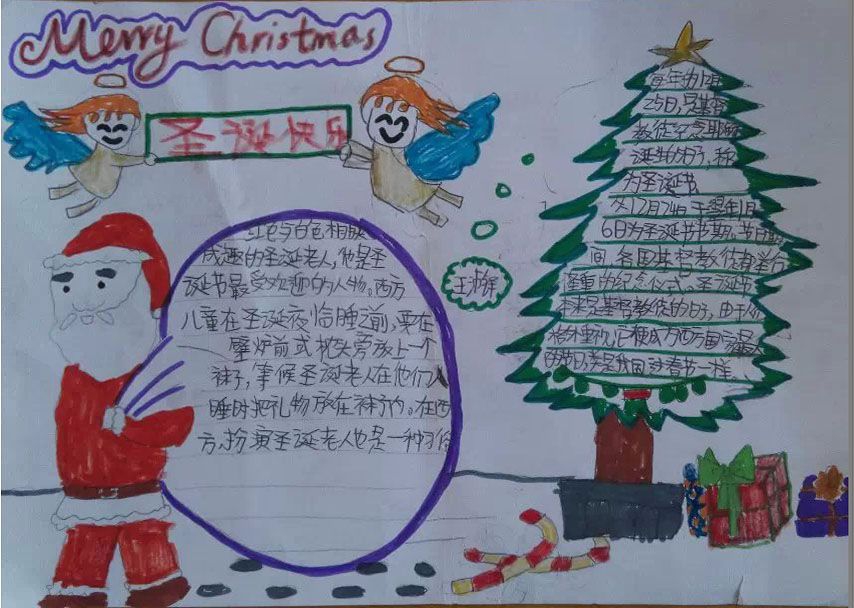 Merry Christmas
圣诞快乐
红色与白色相映
成趣的圣诞老人,他是圣
诞节最受欢迎的人物。西方
儿童在圣诞夜临睡之前,要在
壁炉前或枕头旁放上一个
袜子,等候圣诞老人在他们入
睡时把礼物放在袜子内。在西
方,扮演圣诞老人也是一种习俗
每年为12月
25日,是基督
教徒纪念耶稣
诞生的日子,称
为圣诞节
从12月24日于翌年1月
6日为圣诞节节期。节日期
间,各国基督教徒都举行
隆重的纪念仪式。圣诞节
本来是基督教徒的日子,由于人们
格外重视,它便成为